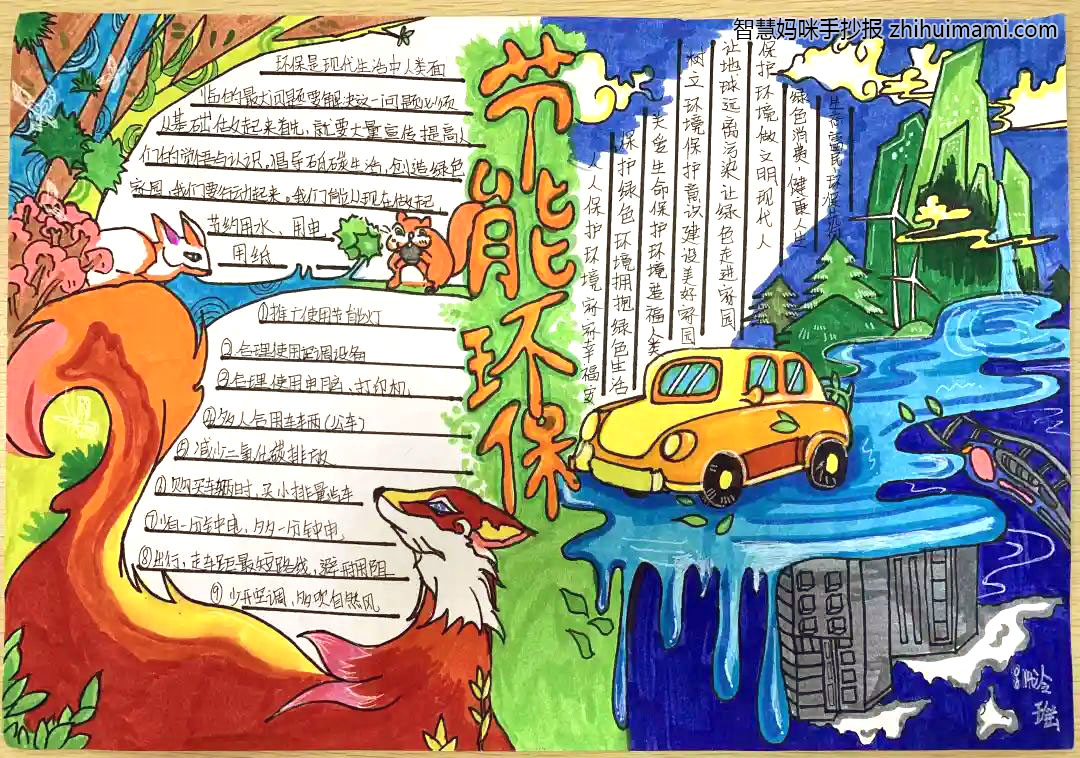 智慧妈咪手抄报 zhihuimami.com
节能环保
环保是现代生活中人类面
临的最大问题要解决这一问题必须
从基础出做起来首先,就要大量宣传提高人
们的觉悟与认识,倡导低碳生活,创造绿色
家园,我们要行动起来。我们能从现在做起
节约用水、用电
用纸
①推广使用节能灯
②合理使用空调设备
③合理使用电脑、打印机
④多人合用车辆(公车)
⑤减少二氧化碳排放
购买车辆时,买小排量汽车
⑦省一分钟电,多一分钟电
⑧出行,走车距最短路线,避开用阻
⑨少开空调,多吹自然风
生态富民,环保
绿色消费,健康人生
保护环境做文明现代人
让地球远离污染让绿色走进家园
树立环境保护意识建设美好家园
关爱生命保护环境造福人类
保护绿色环境拥抱绿色生活
人人保护环境家家幸福